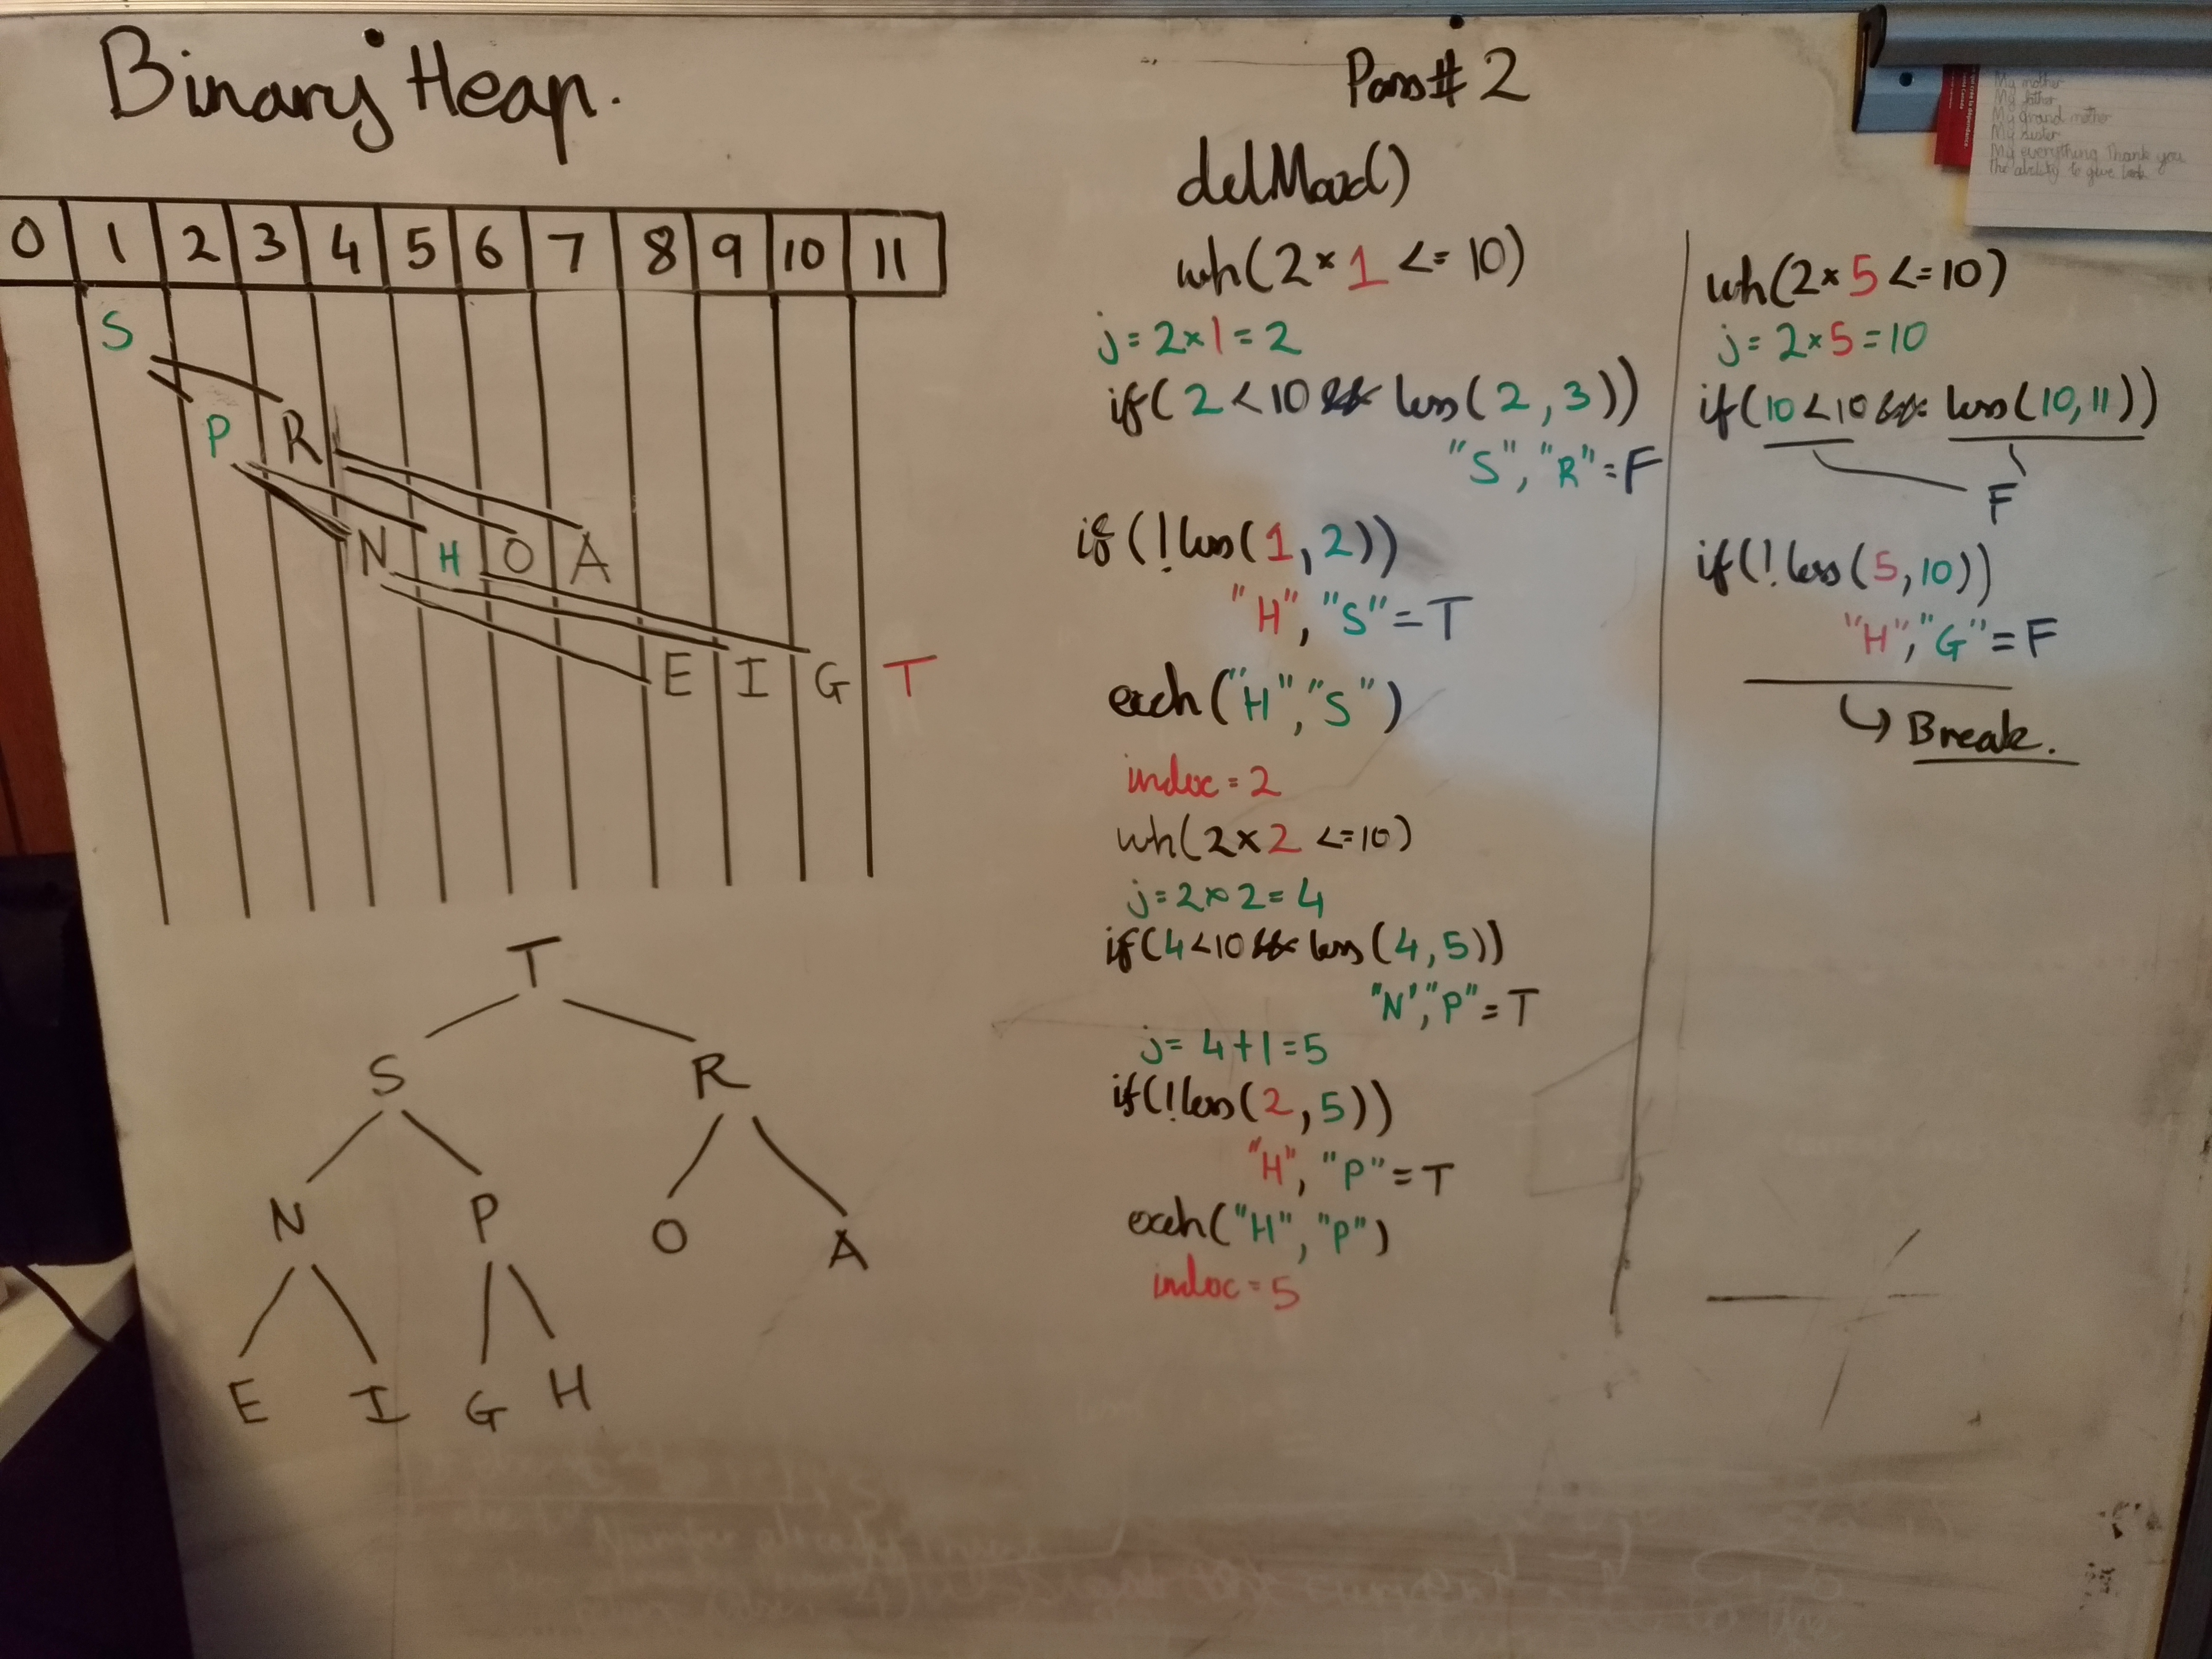 Binary Heap.
0 1 2 3 4 5 6 7 8 9 10 11
S
P R
N H O A
E I G T
T
S R
N P O A
E I G H
Pass# 2
delMax()
wh(2 × 1 <= 10)
j = 2×1 = 2
if( 2 < 10 && less( 2, 3))
"S", "R" = F
if (!less(1, 2))
"H", "S" = T
exch("H", "S")
index = 2
wh(2 × 2 <= 10)
j = 2 × 2 = 4
if(4 < 10 && less(4, 5))
"N", "P" = T
j = 4+1 = 5
if(!less(2, 5))
"H", "P" = T
exch("H", "P")
index = 5
wh(2× 5 <= 10)
j = 2×5 = 10
if(10 < 10 && less(10, 11))
F
if(! less(5, 10))
"H", "G" = F
Break.
My mother
My father
My grand mother
My sister
My everything Thank you
the ability to give